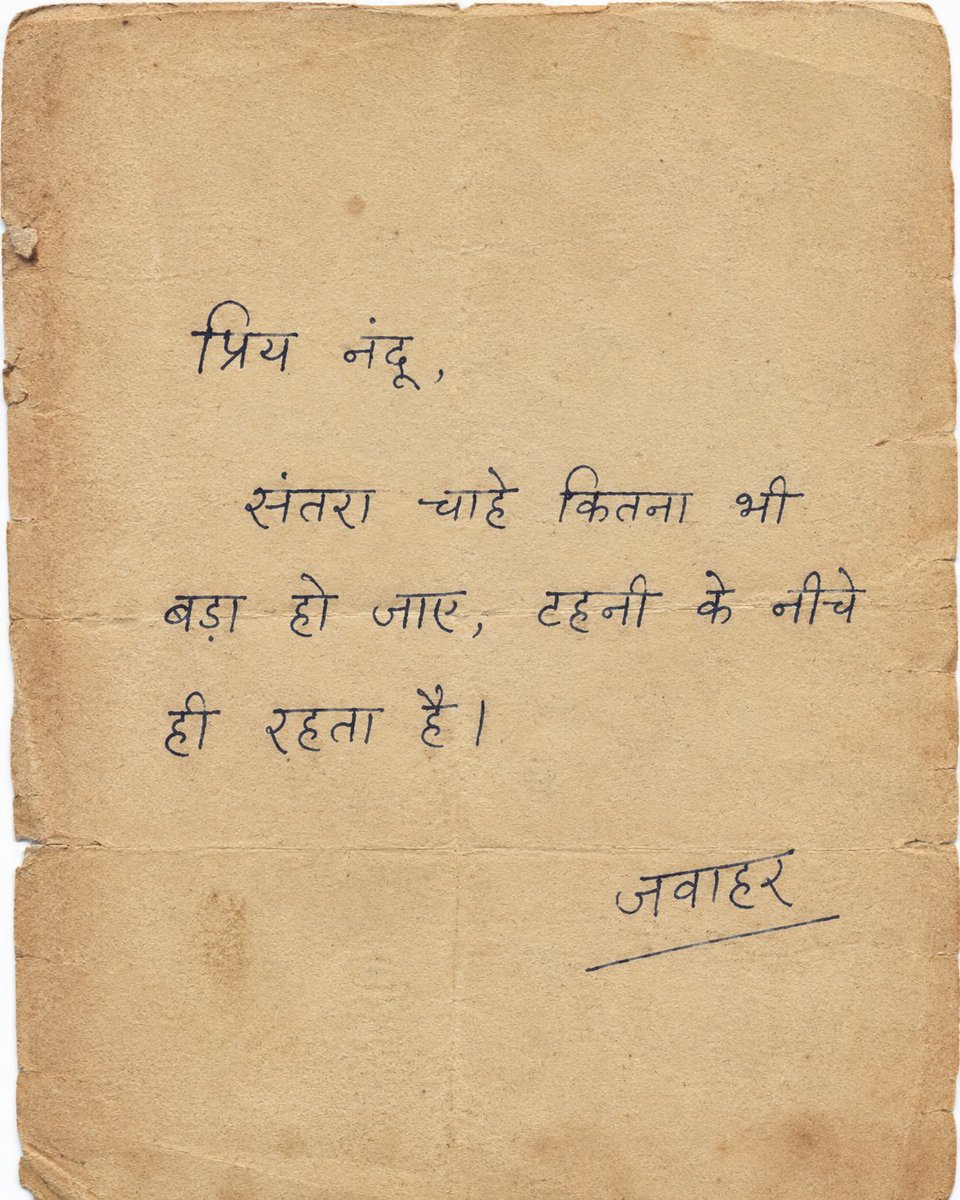 प्रिय नंदू,
संतरा चाहे कितना भी
बड़ा हो जाए, टहनी के नीचे
ही रहता है।
जवाहर